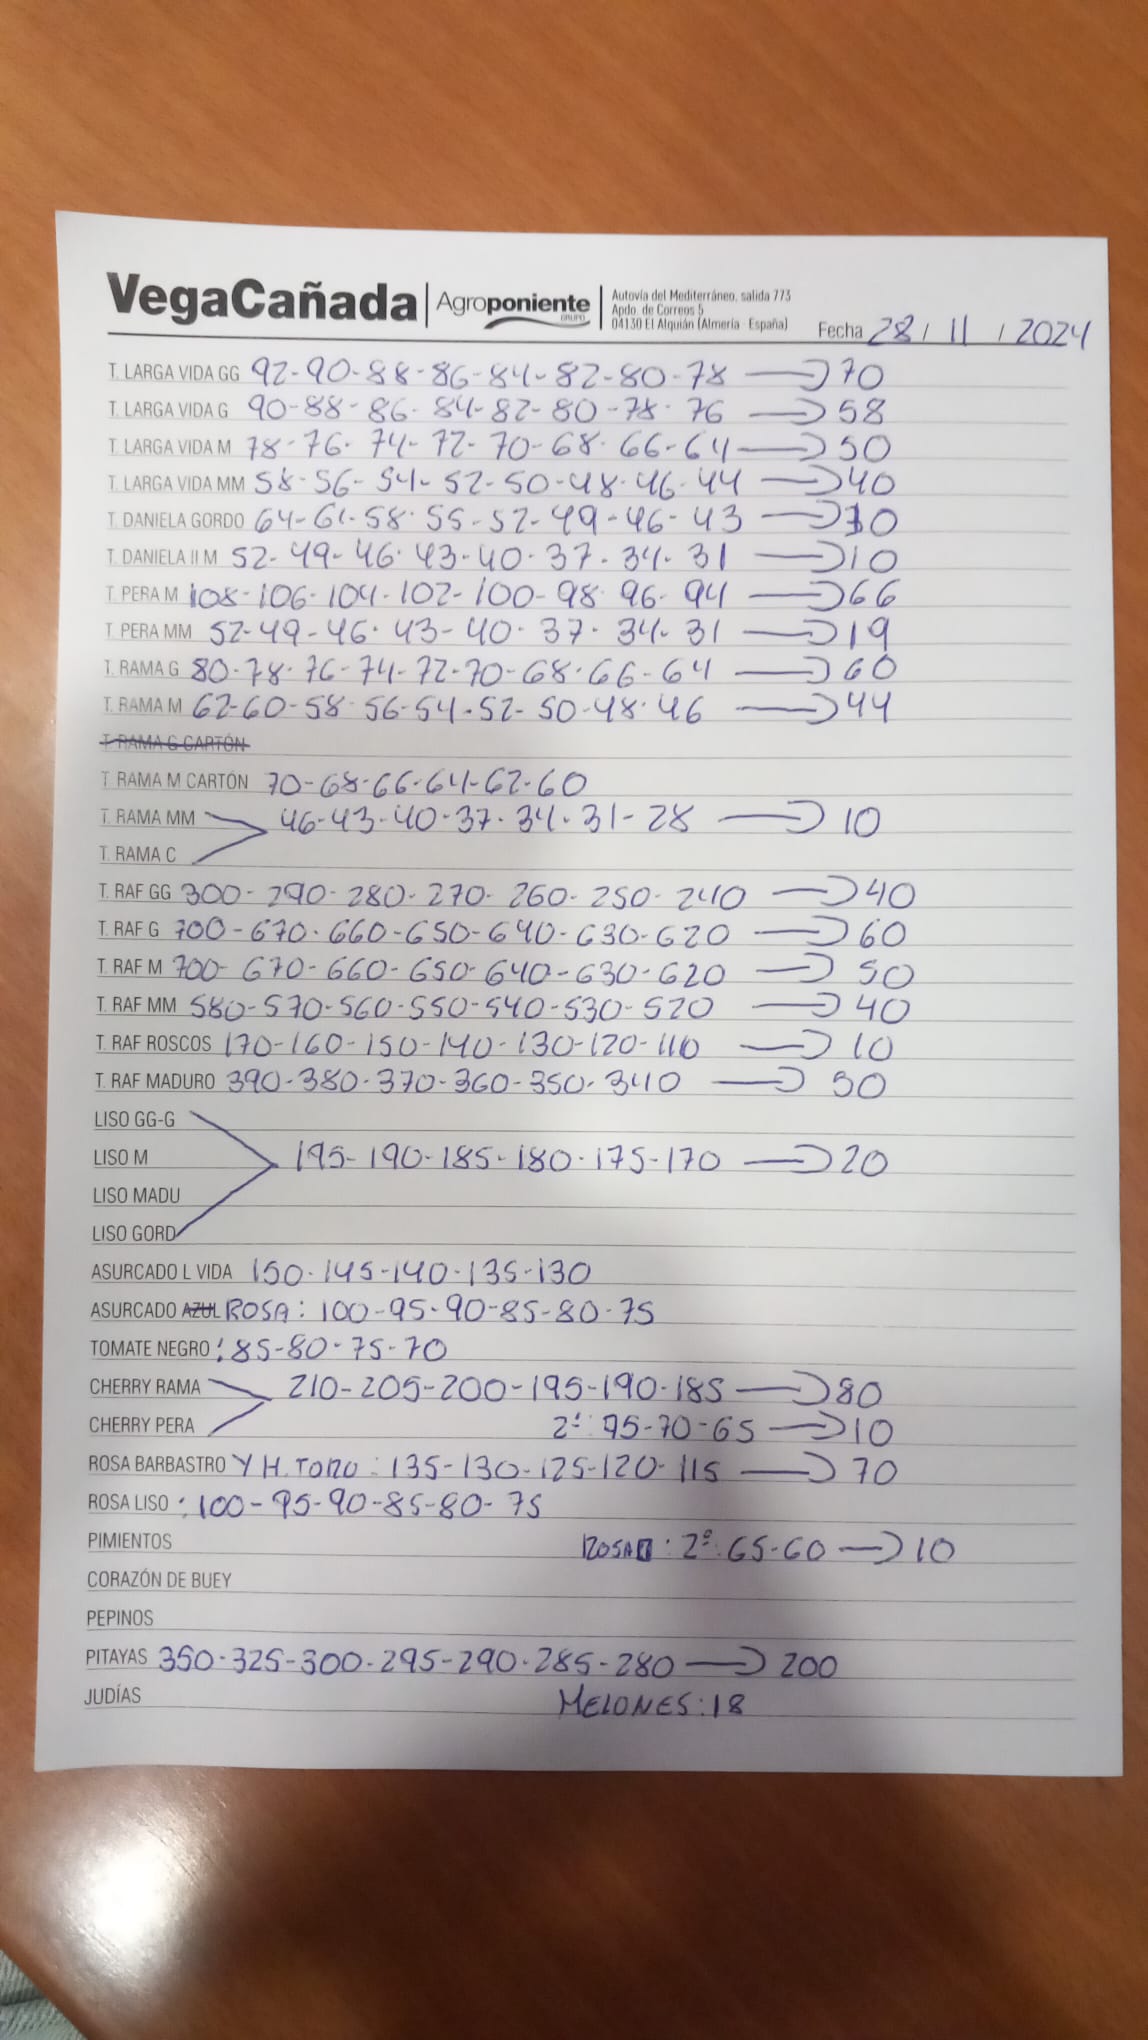 VegaCañada | Agroponiente GRUPO | Autovía del Mediterráneo, salida 773
Apdo. de Correos 5
04130 El Alquián (Almería España)
Fecha 28 / 11 / 2024
T. LARGA VIDA GG 92-90-88-86-84-82-80-78 → 70
T. LARGA VIDA G 90-88-86-84-82-80-78-76 → 58
T. LARGA VIDA M 78-76-74-72-70-68-66-64 → 50
T. LARGA VIDA MM 58-56-54-52-50-48-46-44 → 40
T. DANIELA GORDO 64-61-58-55-52-49-46-43 → 10
T. DANIELA II M 52-49-46-43-40-37-34-31 → 10
T. PERA M 108-106-104-102-100-98-96-94 → 66
T. PERA MM 52-49-46-43-40-37-34-31 → 19
T. RAMA G 80-78-76-74-72-70-68-66-64 → 60
T. RAMA M 62-60-58-56-54-52-50-48-46 → 44
T RAMA G CARTÓN
T RAMA M CARTÓN 70-68-66-64-62-60
T. RAMA MM 46-43-40-37-34-31-28 → 10
T. RAMA C
T. RAF GG 300-290-280-270-260-250-240 → 40
T. RAF G 700-670-660-650-640-630-620 → 60
T. RAF M 700-670-660-650-640-630-620 → 50
T. RAF MM 580-570-560-550-540-530-520 → 40
T. RAF ROSCOS 170-160-150-140-130-120-110 → 10
T. RAF MADURO 390-380-370-360-350-340 → 50
LISO GG-G
LISO M 195-190-185-180-175-170 → 20
LISO MADU
LISO GORD
ASURCADO L VIDA 150-145-140-135-130
ASURCADO AZUL ROSA: 100-95-90-85-80-75
TOMATE NEGRO: 85-80-75-70
CHERRY RAMA 210-205-200-195-190-185 → 80
CHERRY PERA 2ª: 75-70-65 → 10
ROSA BARBASTRO Y H. TORO: 135-130-125-120-115 → 70
ROSA LISO: 100-95-90-85-80-75
PIMIENTOS ROSA: 2ª: 65-60 → 10
CORAZÓN DE BUEY
PEPINOS
PITAYAS 350-325-300-295-290-285-280 → 200
JUDÍAS MELONES: 18